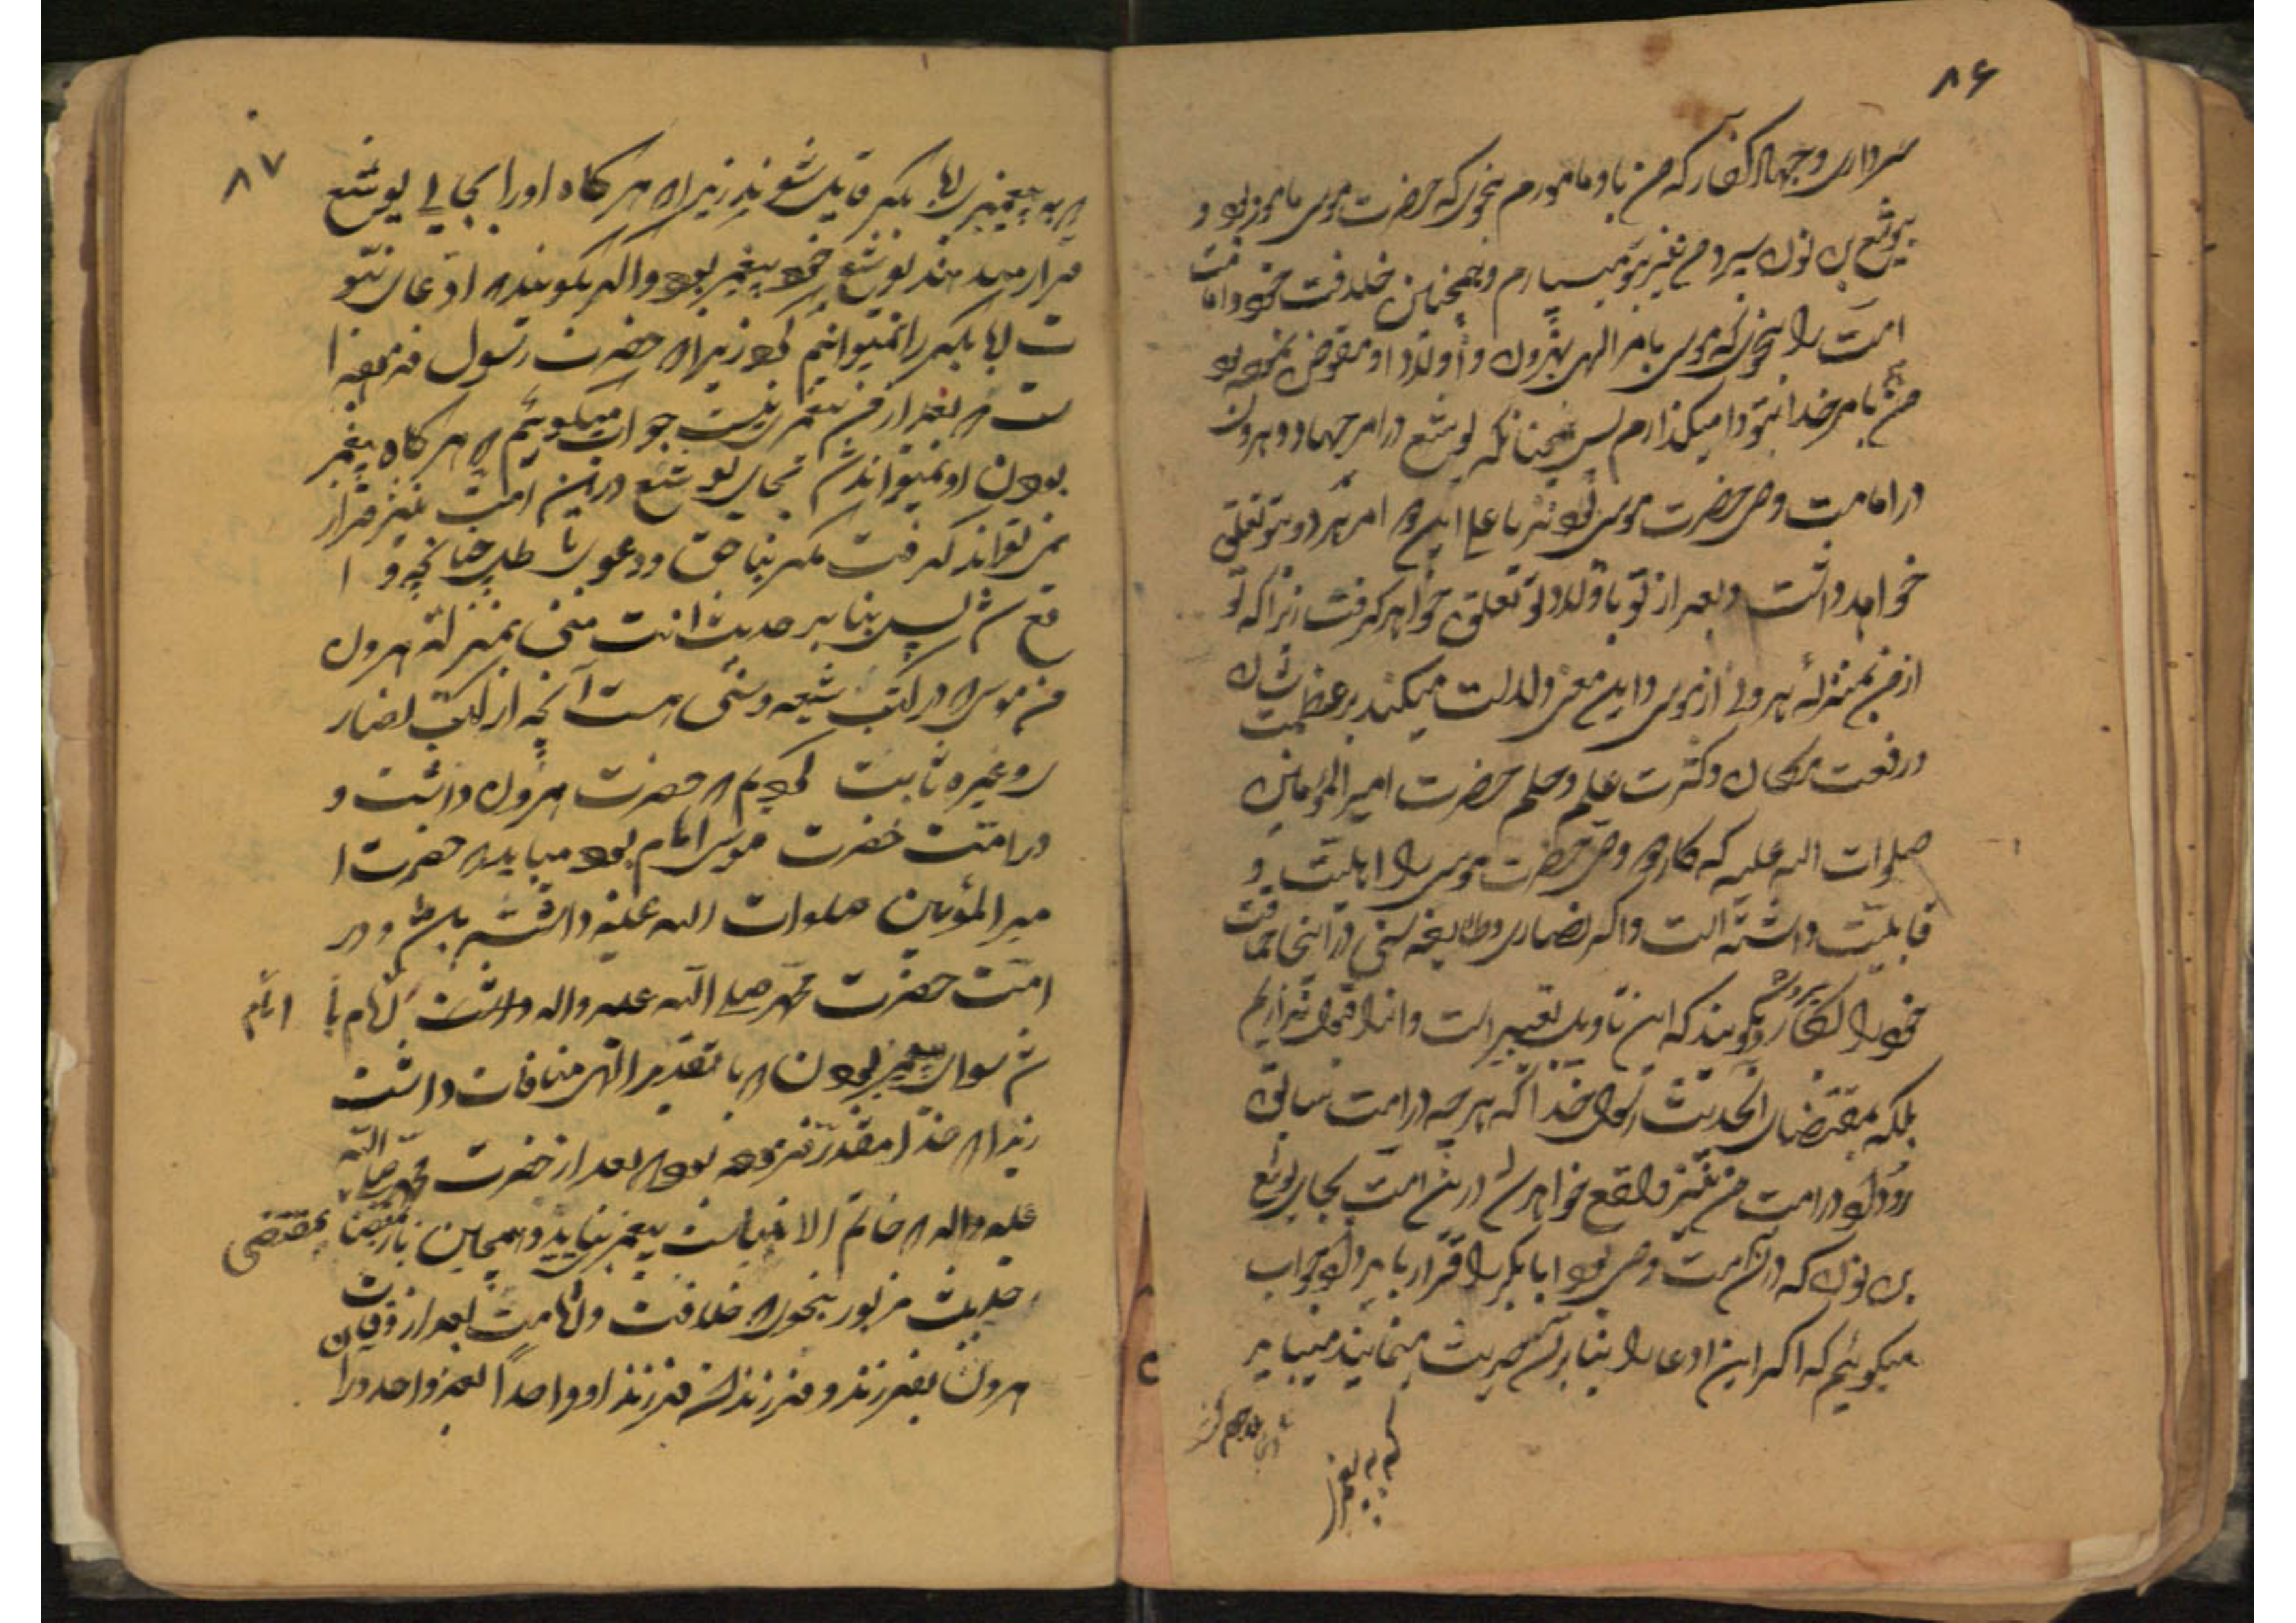 ۸۶
سرداری و جهاد کفار که من باو مامورم بنحوی که حضرت موسی مامور بود و
بیوشع بن نون سپرد من نیز بتو میسپارم و همچنین خلافت خود و امامت
امت را بنحوی که موسی بامر الهی بهرون و اولاد او مفوض نموده بود
من هم بامر خدا بتو وا میگذارم پس چنانکه یوشع در امر جهاد و هرون
در امامت وصی حضرت موسی بودند یا علی این امر هر دو بتو تعلق
خواهد داشت و بعد از تو باولاد تو تعلق خواهد گرفت زیرا که تو
از من بمنزلهٔ هرونی از موسی و این معنی دلالت میکند بر عظمت شان
و رفعت مکان و کثرت علم و حلم حضرت امیر المؤمنین
صلوات الله علیه که کار دو وصی حضرت موسی را اهلیت و
قابلیت داشته است و اگر نصاری و طایفه سنی در اینجا حماقت
خود را بکار برده بگویند که این تاویل تفسیر است و ما انرا قبول نداریم
بلکه بمقتضای الحدیث رسول خدا که هر چه در امت سابق
رو داد در امت من نیز واقع خواهد شد در این امت بجای یوشع
بن نون که در آن امت وصی بود ابابکر را قرار باید داد جواب
میگوئیم که اگر این ادعا را بنا بر آن حدیث مینمایند میباید
که به پیغمبری
۸۷
که به پیغمبری ابا بکر قایل شوند زیرا که هر کاه او را بجای یوشع
قرار میدهند یوشع خود پیغمبر بود و اگر بگویند که ادعای نبو
ت ابا بکر را نمیتوانیم کرد زیرا که حضرت رسول فرموده ا
ست که بعد از من پیغمبری نیست جواب میگوئیم که هر کاه پیغمبر
بودن او نمیتواند شد بجای یوشع در این امت نیز قرار
نمی تواند گرفت مگر بنا حق و دعوی باطل چنانچه وا
قع شد پس بنا بر حدیث انت منی بمنزلة هرون
من موسی که در کتب شیعه و سنی هست آنچه از کتب نصار
ی و غیره ثابت کردیم که حضرت هرون داشت و
در امت حضرت موسی امام بود میباید که حضرت ا
میر المؤمنین صلوات الله علیه داشته باشد و در
امت حضرت محمد صلی الله علیه و اله امام با
امام
شد سوای پیغمبر بودن که با تقدیر الهی منافات داشت
زیرا که خدا مقدر فرموده بود که بعد از حضرت محمد صلی الله
علیه و اله که خاتم الانبیاست پیغمبر نیاید و همچنین باز بمقتضا
بمقتضی
حدیث مزبور بنحوی که خلافت و امامت بعد از وفات
هرون بفرزند و فرزندان فرزند او واحداً بعد واحد در ا